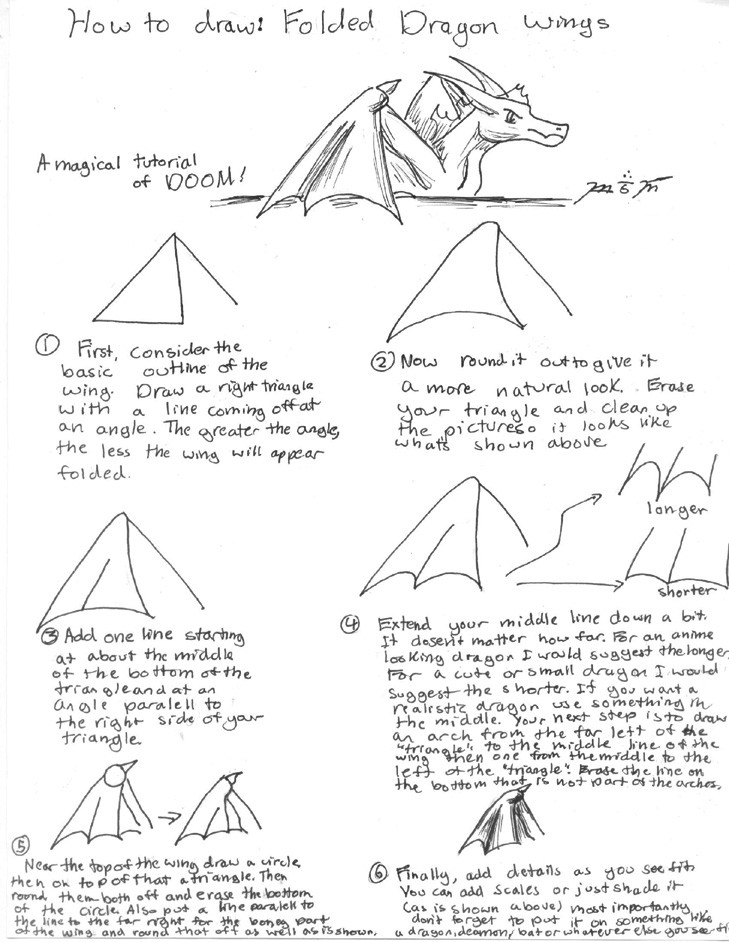 How to draw: Folded Dragon Wings
A magical tutorial
of DOOM!
① First, consider the
basic outline of the
wing. Draw a right triangle
with a line coming off at
an angle. The greater the angle,
the less the wing will appear
folded.
② Now round it out to give it
a more natural look. Erase
your triangle and clean up
the picture so it looks like
whats shown above
longer
shorter
③ Add one line starting
at about the middle
of the bottom of the
triangle and at an
angle paralell to
the right side of your
triangle.
④ Extend your middle line down a bit.
It dosen't matter how far. For an anime
looking dragon I would suggest the longer
For a cute or small dragon I would
suggest the shorter. If you want a
realistic dragon use something in
the middle. Your next step is to draw
an arch from the far left of the
"triangle" to the middle line of the
wing then one from the middle to the
left of the "triangle". Erase the line on
the bottom that is not part of the arches.
⑤
Near the top of the wing draw a circle
then on top of that a triangle. Then
round them both off and erase the bottom
of the circle. Also put a line paralell to
the line to the far right for the boney part
of the wing and round that off as well as is shown.
⑥ Finally, add details as you see fit
You can add scales or just shade it
(as is shown above) most importantly
don't forget to put it on something like
a dragon, deamon, bat or whatever else you see